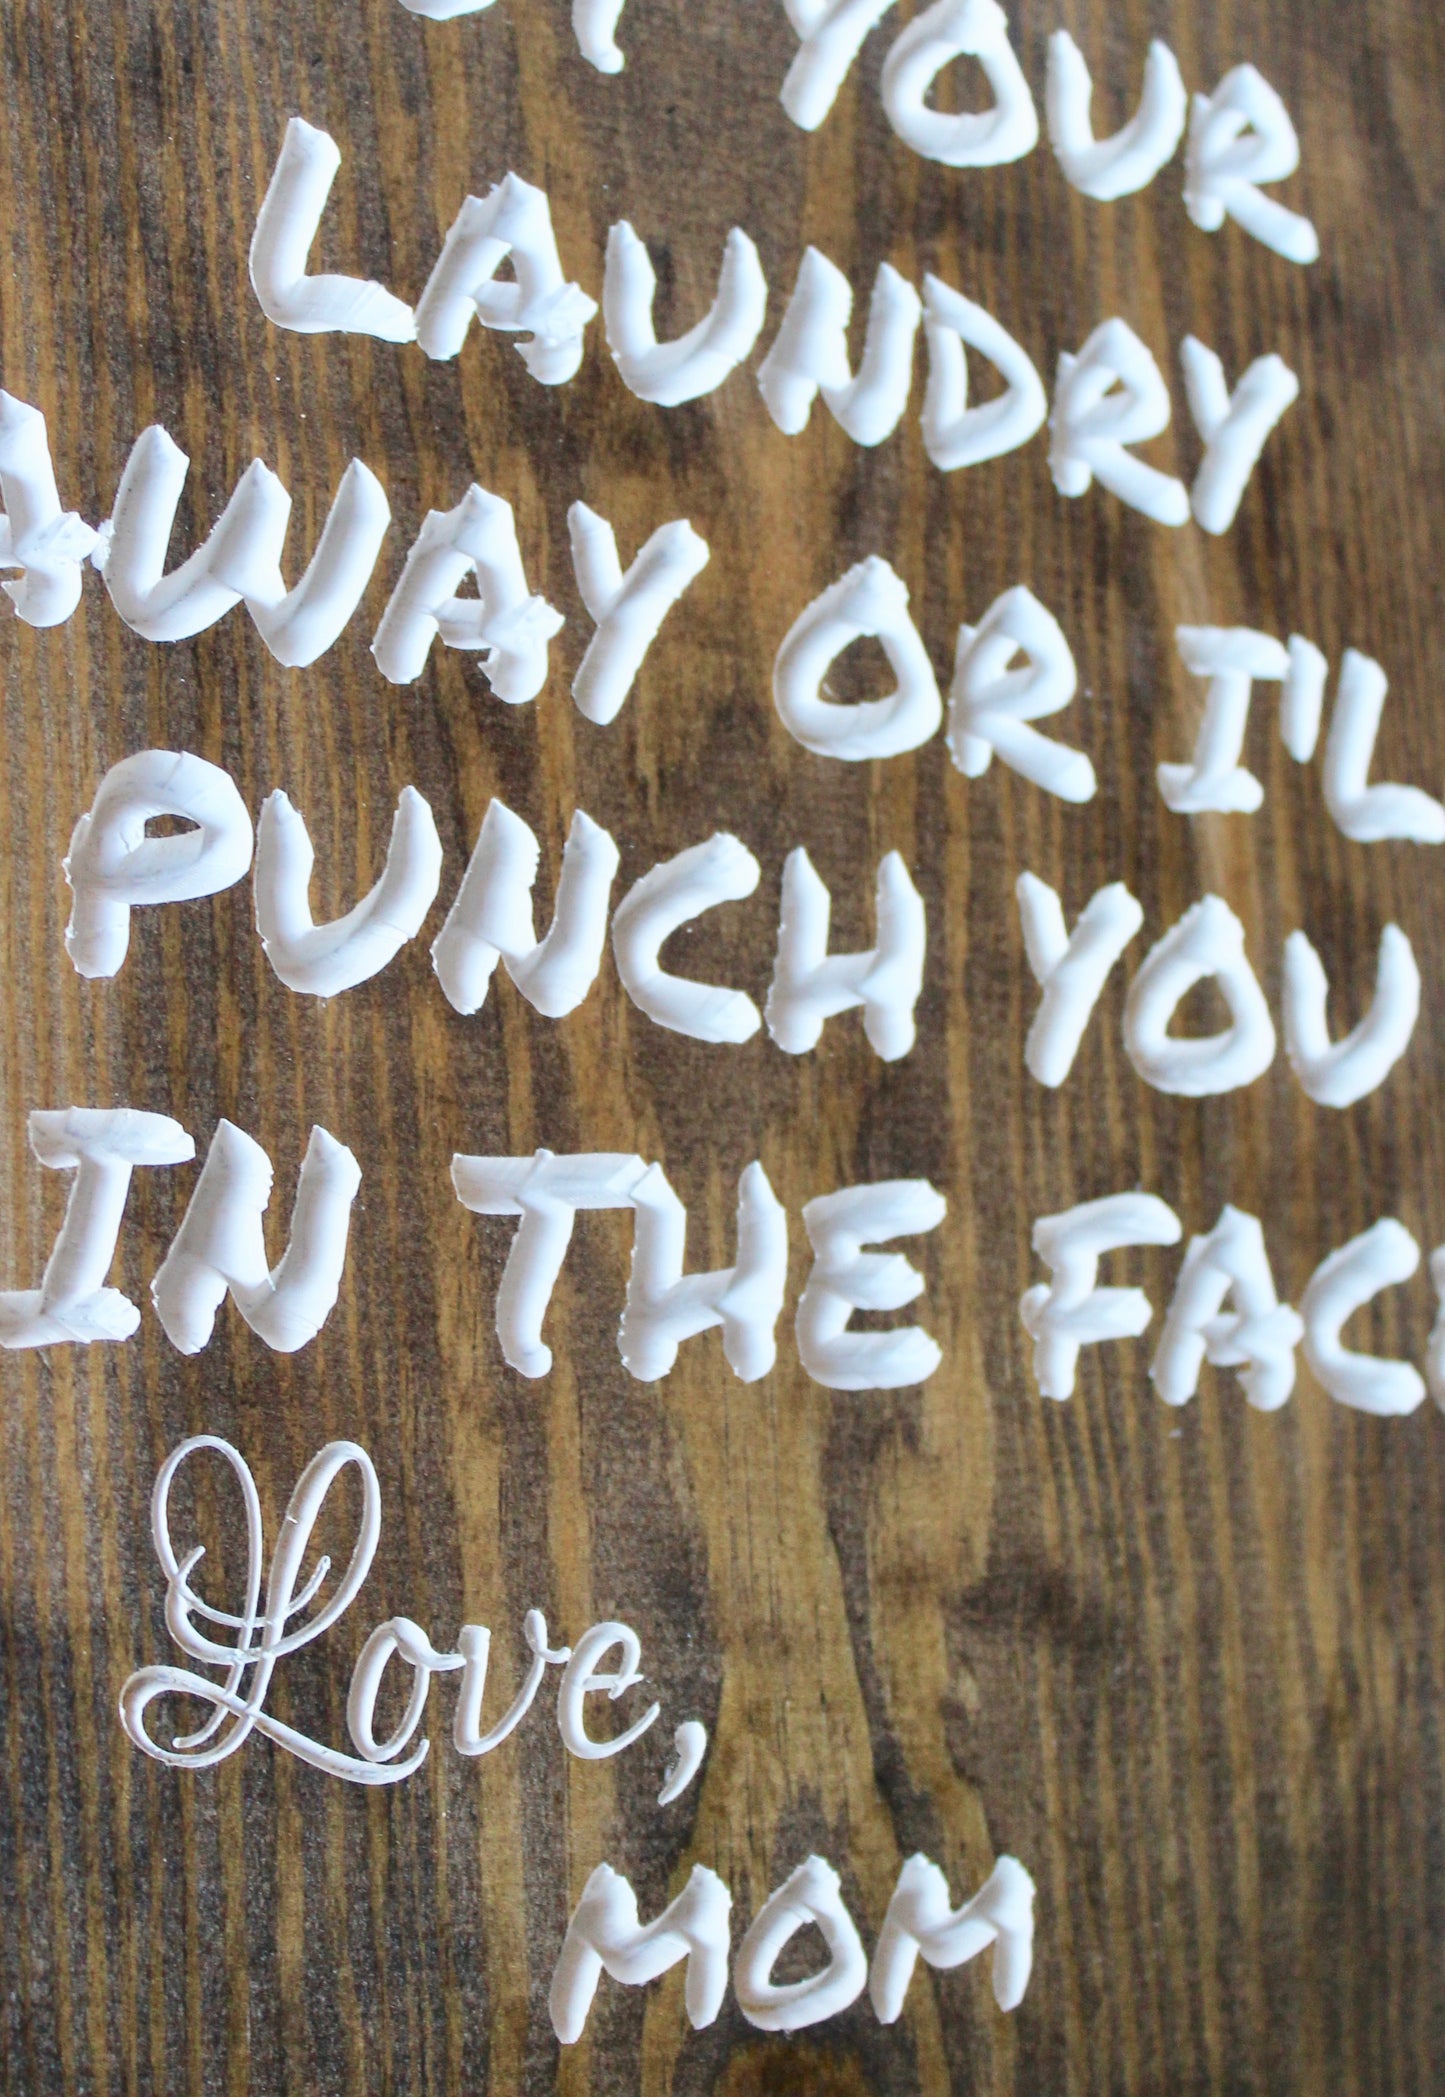 YOUR
LAUNDRY
AWAY OR I'LL
PUNCH YOU
IN THE FACE
Love,
MOM